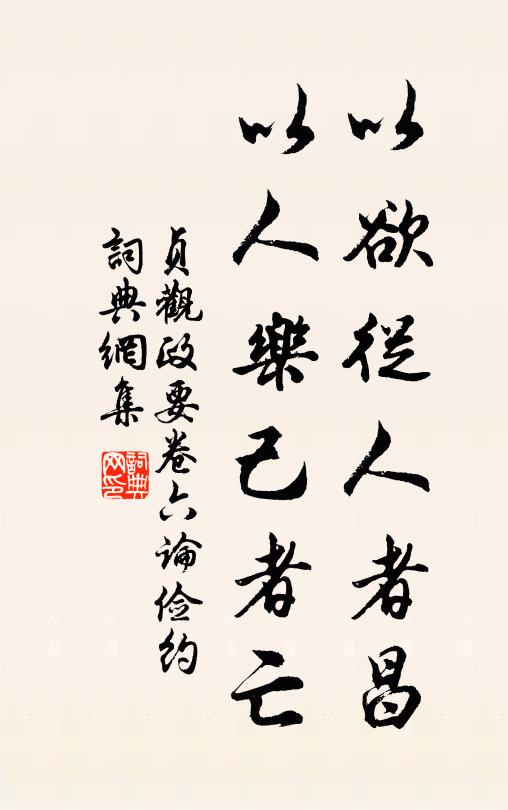 以欲從人者昌
以人樂己者亡
貞觀政要卷六論儉約
詞典網集
詞典
网印